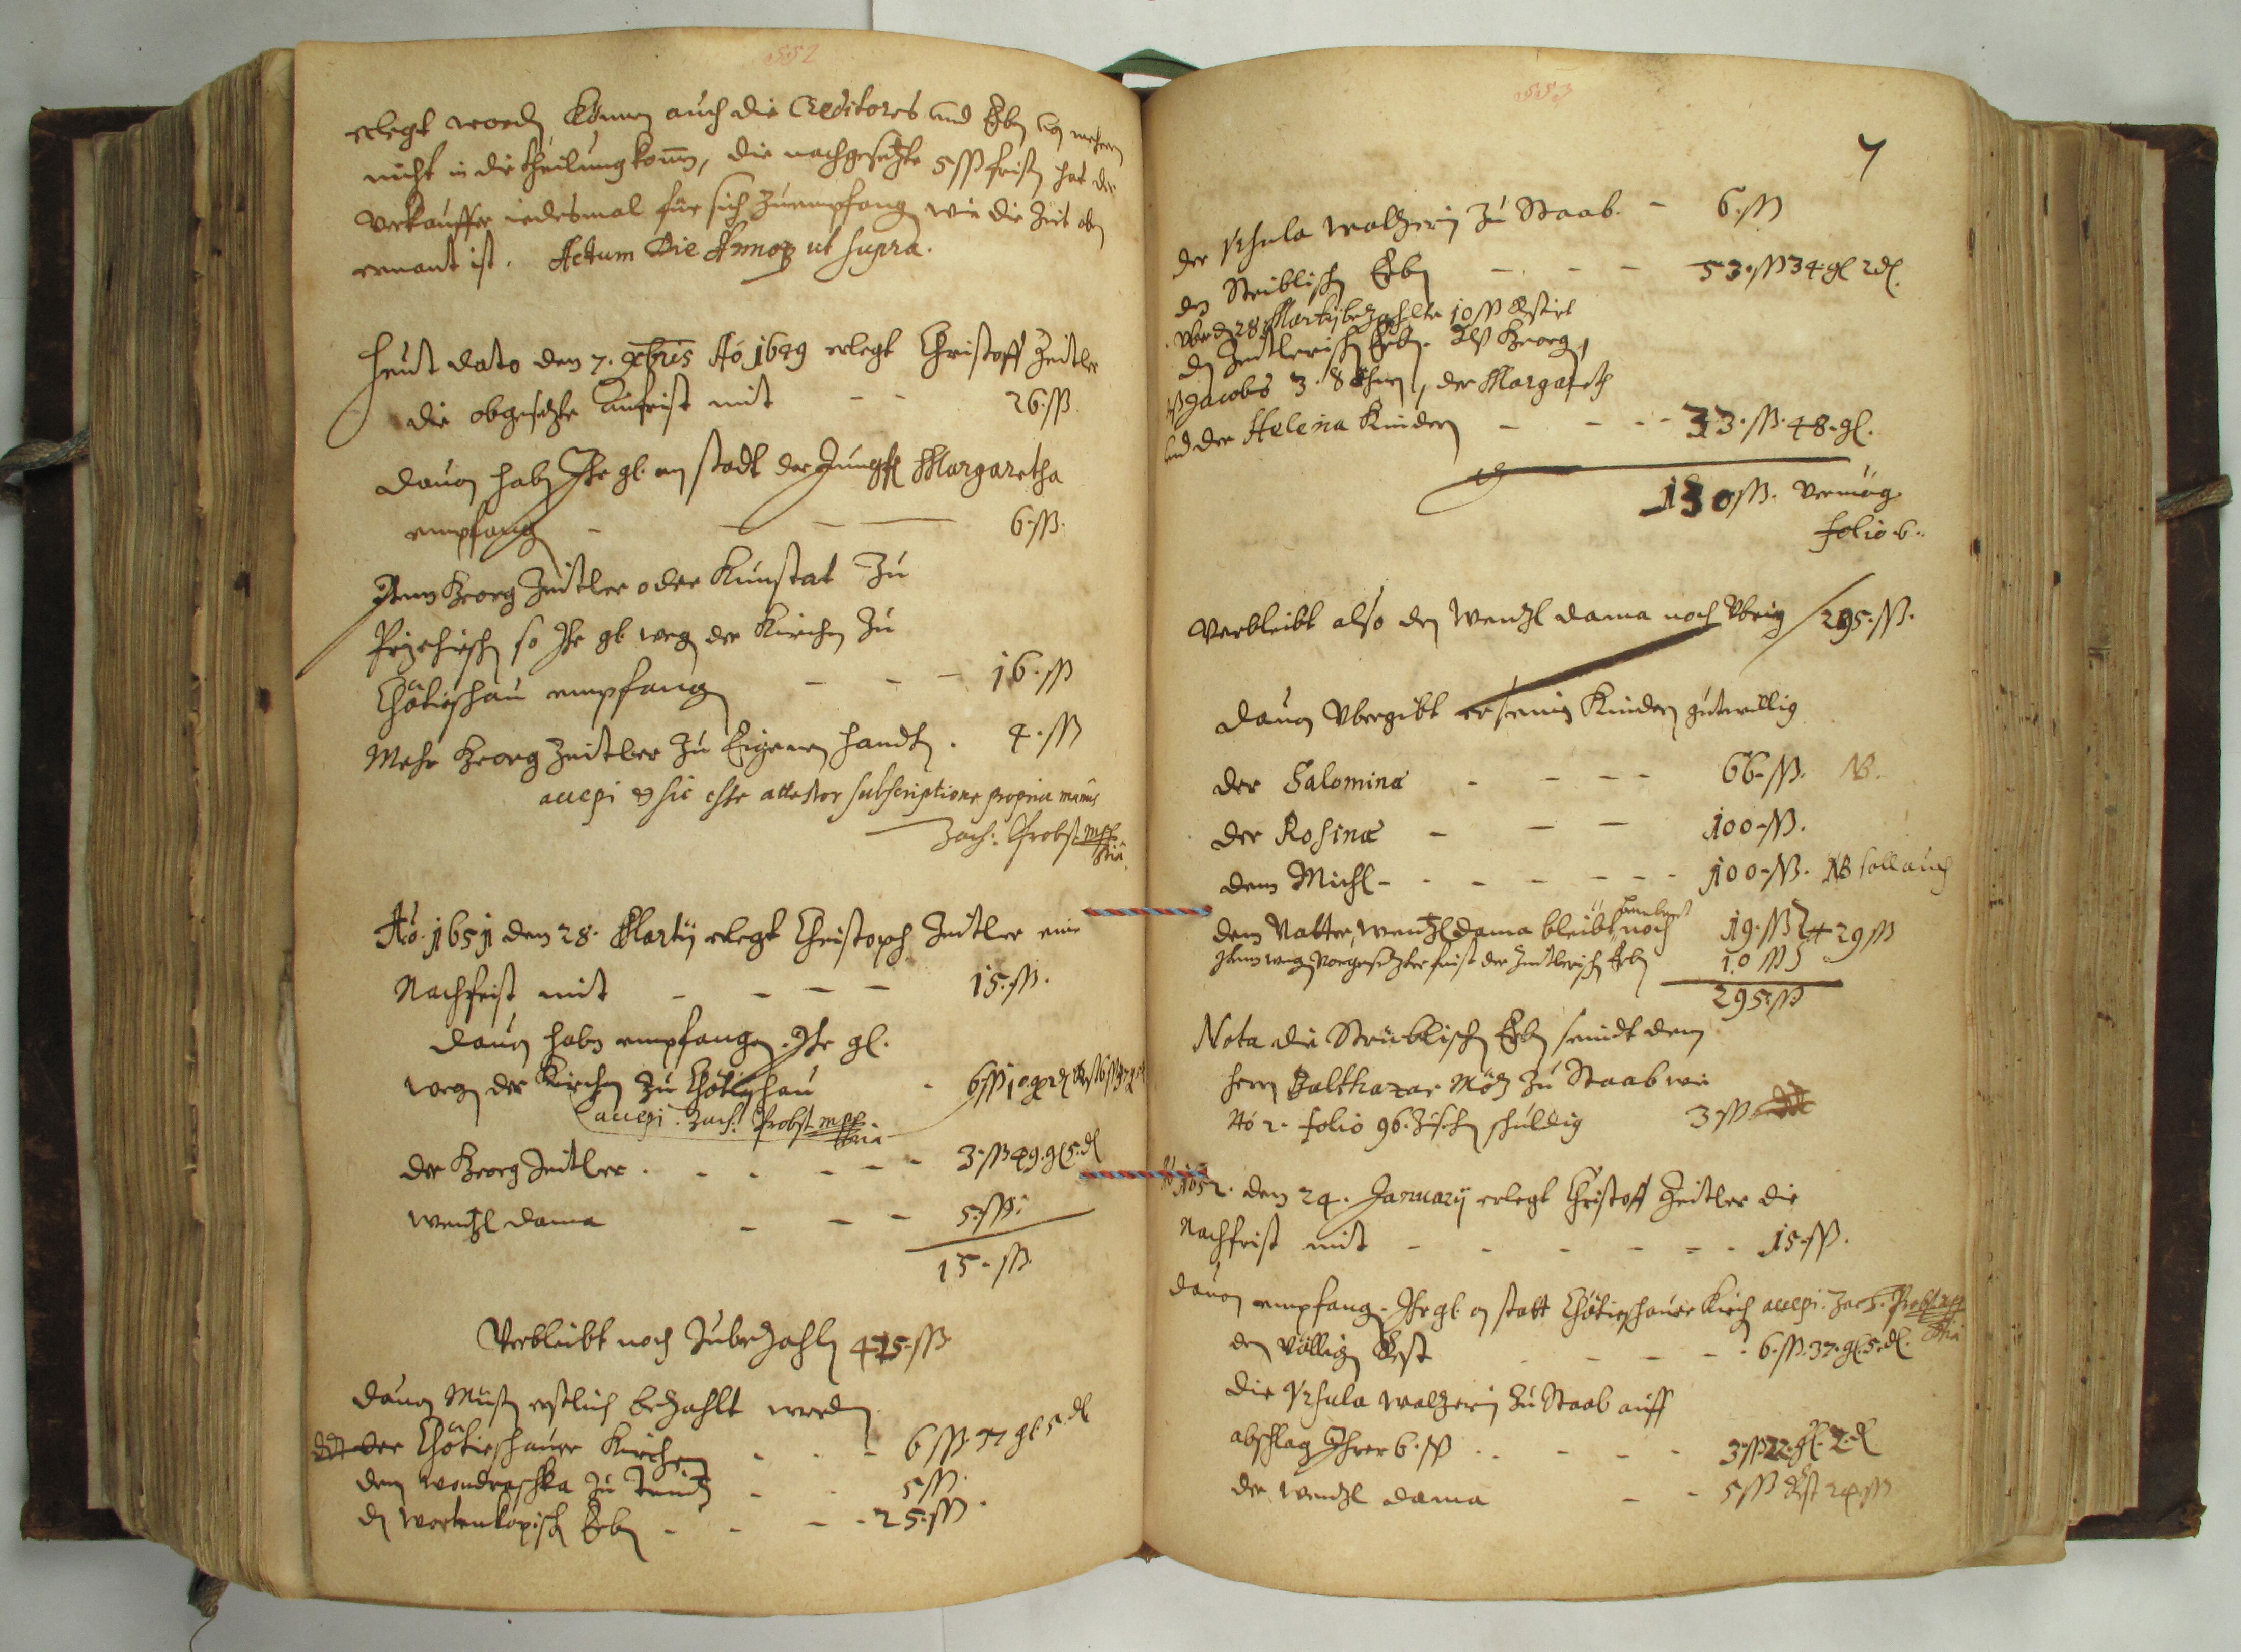 552
erlegt word, können auch die Creditores und Erben
nicht in die theilung kom̄en, die nachgesetzte 5 ß fristen hat der
Verkauffer iedesmal für sich zuempfang wie die Zeit oben
ernant ist. Actum Die Annoq ut supra.
Heut dato den 7. Xbris Aō 1649 erlegt Christoff Zeitler
die obgesetzte Anfrist mit - - 26. ß.
Davon haben Ihr gl. an stadt der Jungfr Margaretha
empfang - - - 6. ß.
Item Georg Zeitler oder Kunstat Zu
so Ihr gl. weg der Kirchen Zu
Chotieschau empfang - - - 16. ß
Mehr Georg Zeitler Zu Eigenen handt. 4. ß
accepi & sic esse attestor subscriptione propria manus
Zach: Probst mpp
Aō. 1651 den 28. Martij erlegt Christoph Zeitler eine
Nachfrist mit - - - - 15. ß.
Davon haben empfangen Ihr gl.
weg der Kirchen Zu Chotieschau - 6 ß
accepi. Zach: Probst mpp
der Georg Zeitler. - - - - - 3. ß 49. gl 5. dl
Wentzl Dama - - - 5. ß.
15. ß.
Verbleibt noch Zubezahlen 425. ß
Davon Müssen erstlich bezahlt werden
der Chotieschauer Kirchen - - - 6 ß. 37 gl. 5. dl
dem Wondraschka Zu - - 5 ß.
den Erben - - - - 25. ß.
553
7
der Ursula Walzerin Zu Staab. - 6. ß
den Striblischen Erben - - - 53. ß 34 gl 2 dl.
28 Martij bezahlte 10 ß Restirt
den Zeitlerischen Erben. Als Georg,
Jacobs 3. Söhnen, der Margareth
und der Helena Kindern - - - - 33. ß. 48. gl.
130 ß. Vermög
folio 6.
Verbleibt also den Wentzl Dama noch Übrig 295. ß.
Davon Übergibt er seinen Kindern gutwillig
der Salomina - - - - 66. ß. NB.
der Rosina - - - 100. ß.
dem Michl - - - - - - - 100. ß. NB soll auch
dem Vatter, Wentzl Dama bleibt noch 19. ß 29 ß
Item wegen Vorgesetzter frist der Zeitlerischen Erben 10 ß
295. ß
Nota die Striblischen Erben seindt dem
Herrn Balthazar Zu Staab wie
Nō 2. folio 96. Zusehen schuldig 3. ß.
Aō 1652. den 24. January erlegt Christoff Zeitler die
Nachfrist mit - - - - - - 15. ß.
Davon empfang. Ihr gl. an statt Chotieschauer Kirch accepi. Zach: Probst mpp
den völligen Rest - - - - 6. ß. 37. gl 5. dl.
die Ursula Walzerin Zu Staab auff
abschlag Ihrer 6. ß - - - - 3. ß 22. gl. 2. dl
der Wentzl Dama - - 5 ß Rest 24 ß